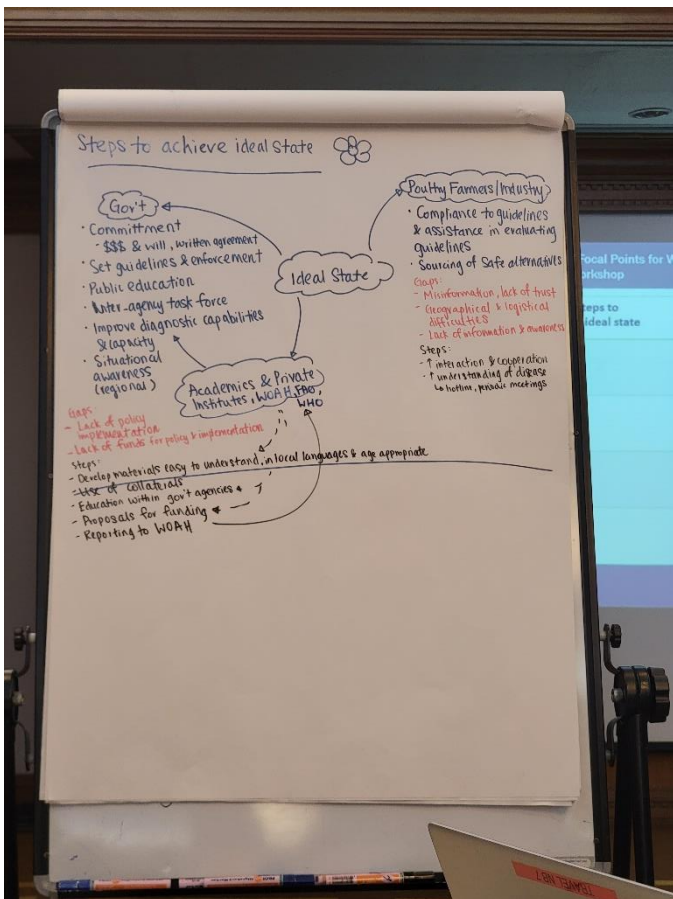 Steps to achieve ideal state
Gov't
· Committment
- $$$ & will, written agreement
· Set guidelines & enforcement
· Public education
· Inter-agency task force
· Improve diagnostic capabilities
& capacity
· Situational
awareness
(regional)
Ideal State
Poultry Farmers/Industry
· Compliance to guidelines
& assistance in evaluating
guidelines
· Sourcing of Safe alternatives
Gaps:
- Misinformation, lack of trust
- Geographical & logistical
difficulties
- Lack of information & awareness
Steps:
- ↑ interaction & cooperation
- ↑ understanding of disease
↳ hotline, periodic meetings
Academics & Private
Institutes, WOAH, FAO,
WHO
Gaps
- Lack of policy
implementation
- Lack of funds for policy & implementation
Steps:
- Develop materials easy to understand, in local languages & age appropriate
- Use of collaterals
- Education within gov't agencies
- Proposals for funding
- Reporting to WOAH
Focal Points for W
orkshop
teps to
ideal state
TRAVEL NB7